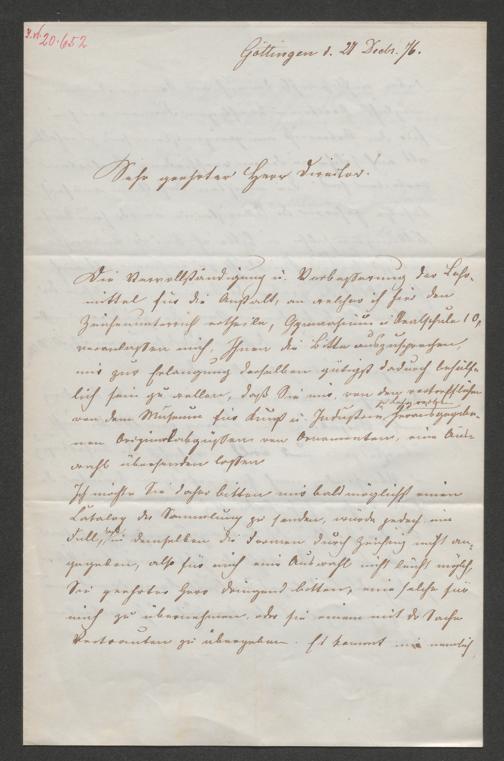 20.652
Göttingen d. 21 Decbr. 76.
Sehr geehrter Herr Director!
Die Vervollständigung u. Verbesserung der Lehr-
mittel für die Anstalt, an welcher ich hier den
Zeichenunterricht ertheile, Gymnasium u. Realschule I O,
veranlassen mich, Ihnen die Bitte auszusprechen,
mir zur Erlangung derselben gütigst dadurch behülf-
lich sein zu wollen, daß Sie mir, von den vortrefflichen
von dem Museum für Kunst u. Industrie herausgegebe-
nen Originalabgüssen von Ornamenten, eine Aus-
wahl übersenden lassen
Ich möchte Sie daher bitten mir baldmöglichst einen
Catalog der Sammlung zu senden, würde jedoch, im
Fall, in demselben die Formen durch Zeichnung nicht an-
gegeben, also für mich eine Auswahl nicht leicht möglich
Sie geehrter Herr dringend bitten, eine solche für
mich zu übernehmen, oder sie einem mit der Sache
Vertrauten zu übergeben. Es kommt mir nemlich